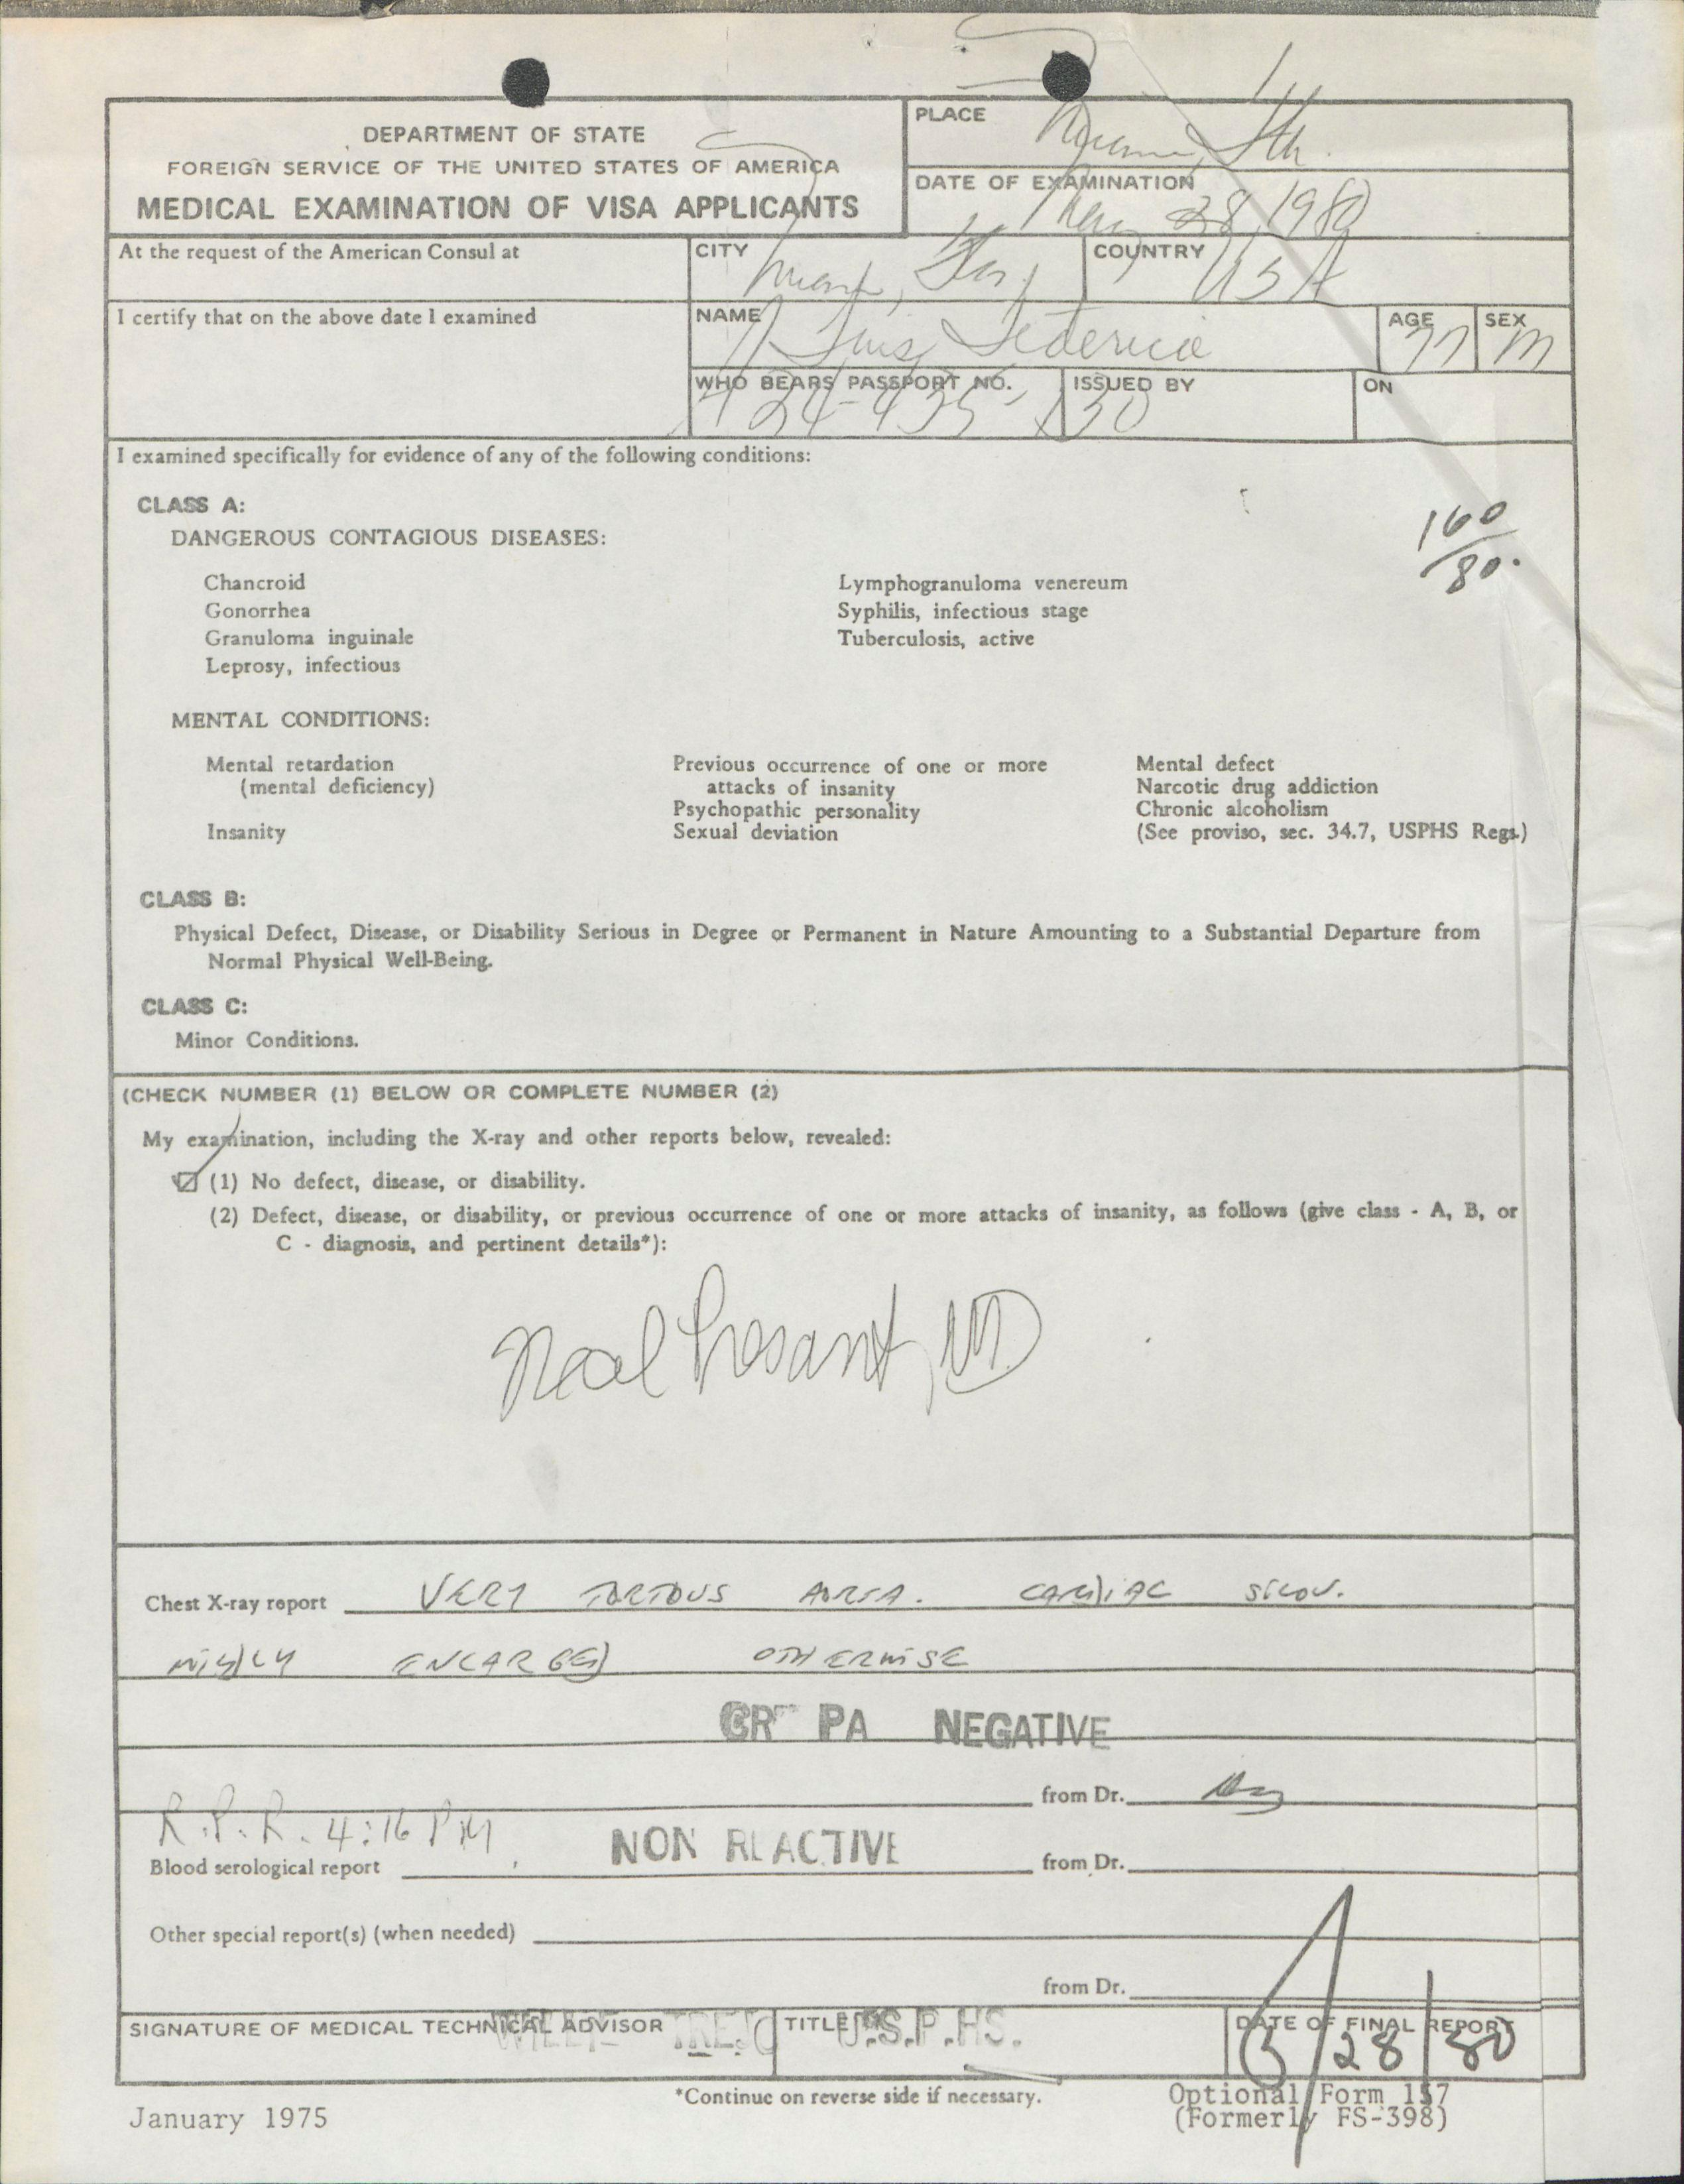 DEPARTMENT OF STATE
FOREIGN SERVICE OF THE UNITED STATES OF AMERICA
MEDICAL EXAMINATION OF VISA APPLICANTS
PLACE
DATE OF EXAMINATION
28, 1980
At the request of the American Consul at
CITY
COUNTRY
USA
I certify that on the above date I examined
NAME
Luis, Federico
AGE
77
SEX
M
WHO BEARS PASSPORT NO.
ISSUED BY
ON
I examined specifically for evidence of any of the following conditions:
160
80.
CLASS A:
DANGEROUS CONTAGIOUS DISEASES:
Chancroid Lymphogranuloma venereum
Gonorrhea Syphilis, infectious stage
Granuloma inguinale Tuberculosis, active
Leprosy, infectious
MENTAL CONDITIONS:
Mental retardation Previous occurrence of one or more Mental defect
(mental deficiency) attacks of insanity Narcotic drug addiction
Psychopathic personality Chronic alcoholism
Insanity Sexual deviation (See proviso, sec. 34.7, USPHS Regs.)
CLASS B:
Physical Defect, Disease, or Disability Serious in Degree or Permanent in Nature Amounting to a Substantial Departure from
Normal Physical Well-Being.
CLASS C:
Minor Conditions.
(CHECK NUMBER (1) BELOW OR COMPLETE NUMBER (2)
My examination, including the X-ray and other reports below, revealed:
(1) No defect, disease, or disability.
(2) Defect, disease, or disability, or previous occurrence of one or more attacks of insanity, as follows (give class - A, B, or
C - diagnosis, and pertinent details*):
Neal Presant, MD
Chest X-ray report VERY TORTOUS AORTA. CARDIAC
MILDLY ENLARGED OTHERWISE
PA NEGATIVE
from Dr.
R.P.R. 4:16 PM
Blood serological report NON REACTIVE from Dr.
Other special report(s) (when needed)
from Dr.
SIGNATURE OF MEDICAL TECHNICAL ADVISOR
WILLIE TREJO
TITLE
U.S.P.HS.
DATE OF FINAL REPORT
3/28/80
*Continue on reverse side if necessary.
January 1975
Optional Form 157
(Formerly FS-398)